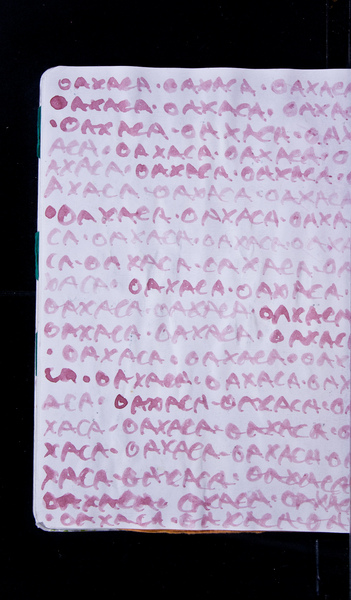 OAXACA · OAXACA · OAXACA
OAXACA · OAXACA · OAXA
· OAXACA · OAXACA · OAX
ACA · OAXACA · OAXACA · O
AXACA · OAXACA · OAXACA ·
AXACA · OAXACA · OAXACA
OAXACA · OAXACA · OAXA
CA · OAXACA · OAXACA · OAXA
CA · OAXACA · OAXACA · OA
XACA · OAXACA · OAXACA ·
OAXACA · OAXACA · OAXACA
OAXACA · OAXACA · OAXACA
· OAXACA · OAXACA · OA
CA · OAXACA · OAXACA · OAX
ACA · OAXACA · OAXACA · O
XACA · OAXACA · OAXACA · O
XACA · OAXACA · OAXACA · O
XACA · OAXACA · OAXACA
OAXACA · OAXACA · OAXA
· OAXACA · OAXACA · OA